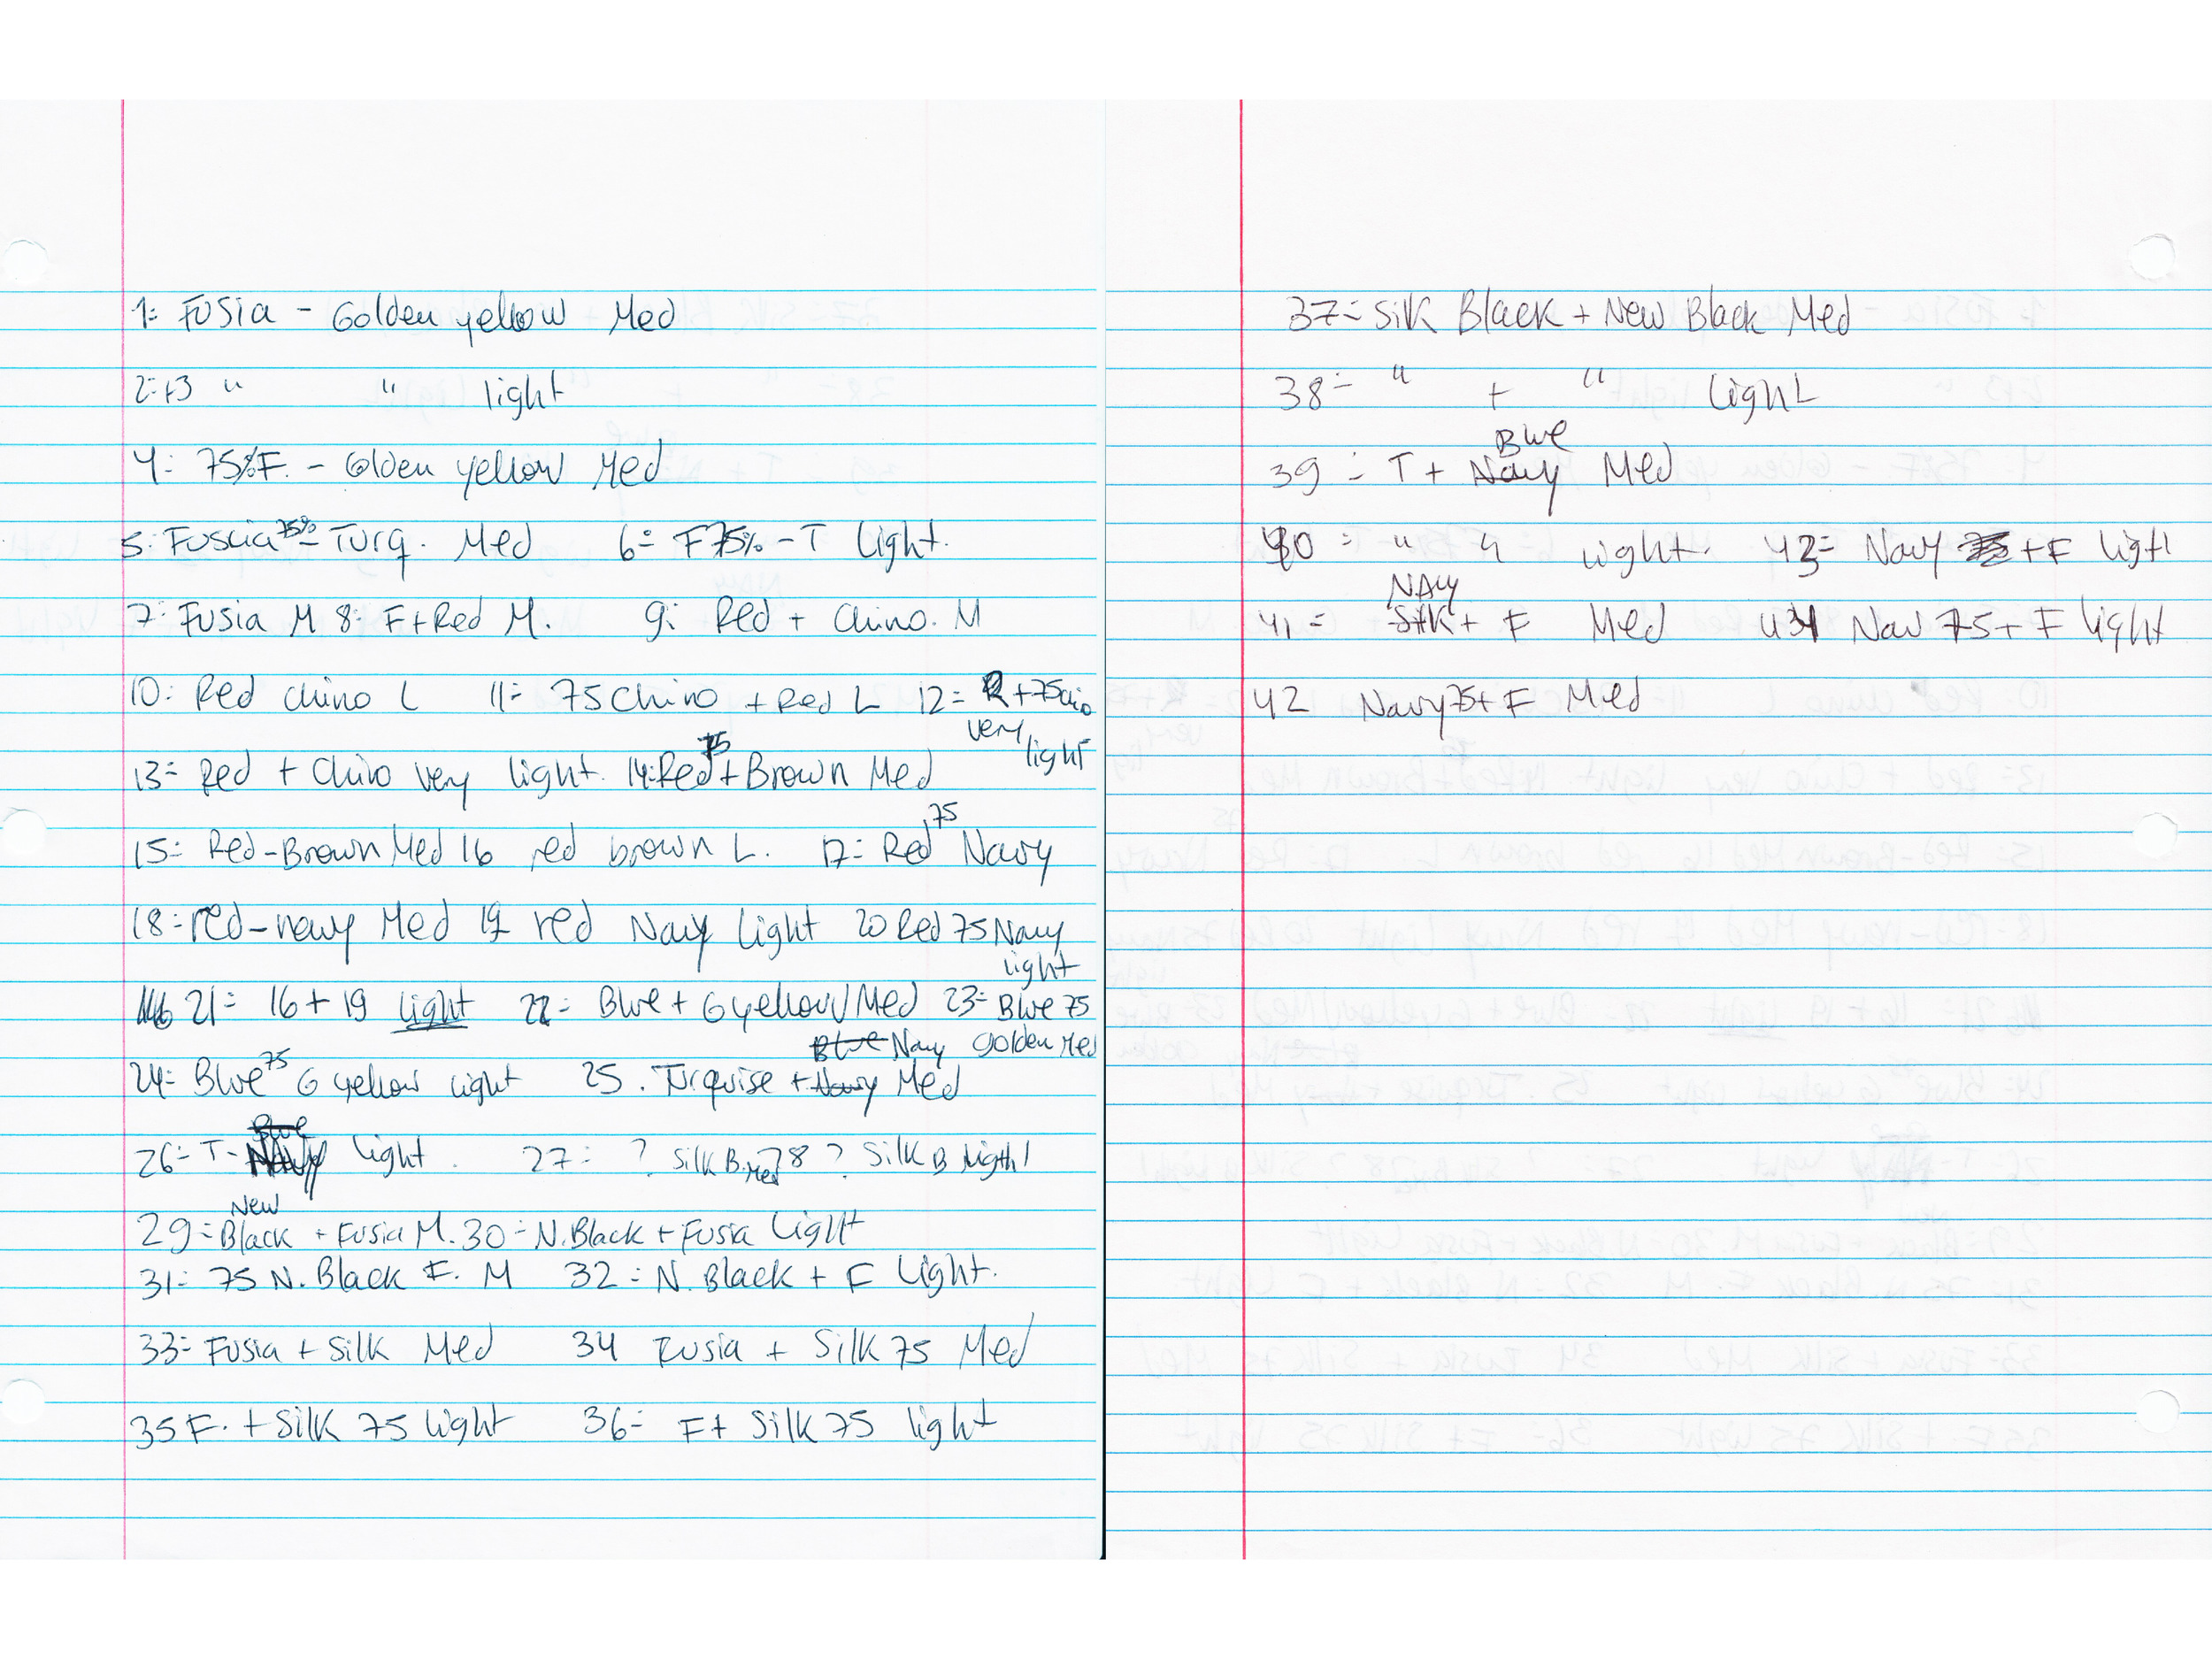 1= Fusia - Golden yellow Med
2=+3 " " light
4= 75%F. - Golden yellow Med
5: Fuscia 75% - Turq. Med 6= F75% - T Light.
7: Fusia M 8: F+Red M. 9: Red + Chino. M
10: Red chino L 11= 75 Chino + Red L 12= R + 75 Chio
very light
13= Red + Chino very light. 14=Red 75 + Brown Med
15= Red-Brown Med 16 red brown L. 17= Red 75 Navy
18=red-navy Med 19 red Navy light 20 Red 75 Navy
light
21= 16 + 19 light 22= Blue + G yellow Med 23= Blue 75
Golden Med
24= Blue 75 G yellow light 25. Turquise + Navy Med
26= T- light. 27= ? Silk B. Med 28 ? Silk B light
29= New Black + Fusia M. 30= N. Black + Fusia Light
31= 75 N. Black F. M 32= N. Black + F Light.
33= Fusia + Silk Med 34 Fusia + Silk 75 Med
35 F. + Silk 75 light 36= F+ Silk 75 light
37= Silk Black + New Black Med
38= " + " Light
39= T + Blue Med
40= " " Light. 43= Navy +F light
41= NAvy + F Med 44 Nav 75+ F light
42 Navy 75+ F Med